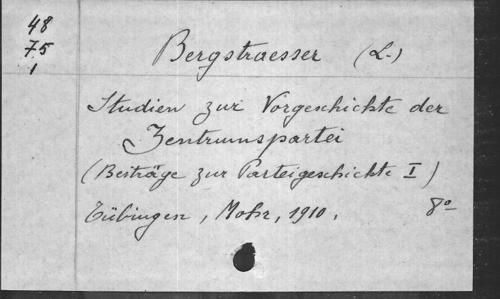 48
75
1
Bergstraesser (L.)
Studien zur Vorgeschichte der
Zentrumspartei
(Beiträge zur Parteigeschichte I)
Tübingen, Mohr, 1910. 8°